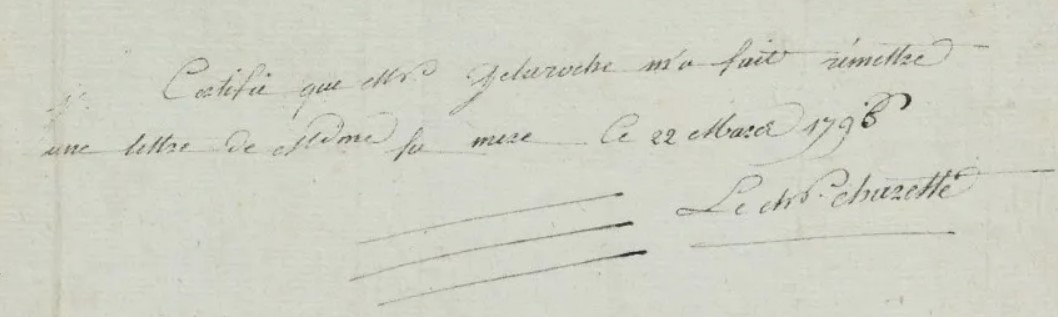 Je Certifie que Mr Delaroche m'a fait rémettre
une lettre de Mdme sa mere le 22 Mars 1796
Le chr. charette